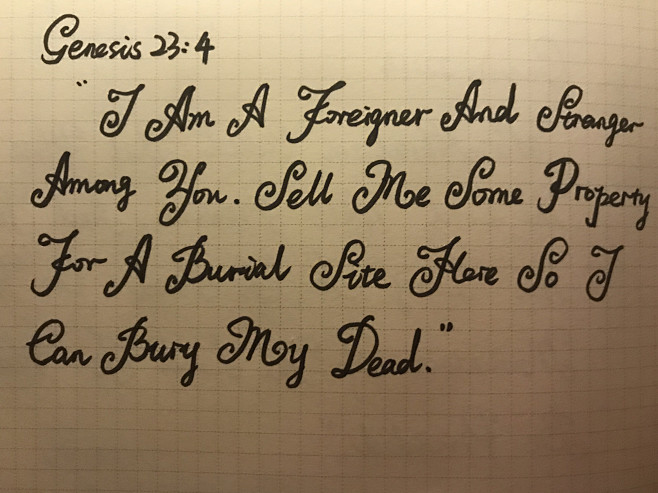 Genesis 23:4
"I Am A Foreigner And Stranger
Among You. Sell Me Some Property
For A Burial Site Here So I
Can Bury My Dead."